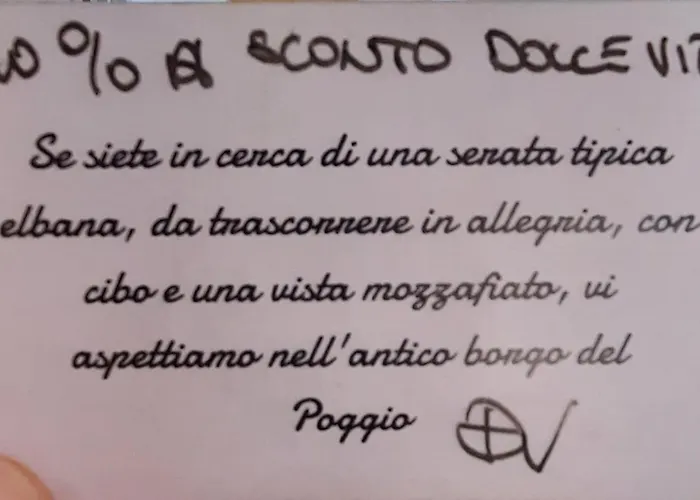 0 % SCONTO DOLCE VIT
Se siete in cerca di una serata tipica
elbana, da trascorrere in allegria, con
cibo e una vista mozzafiato, vi
aspettiamo nell'antico borgo del
Poggio